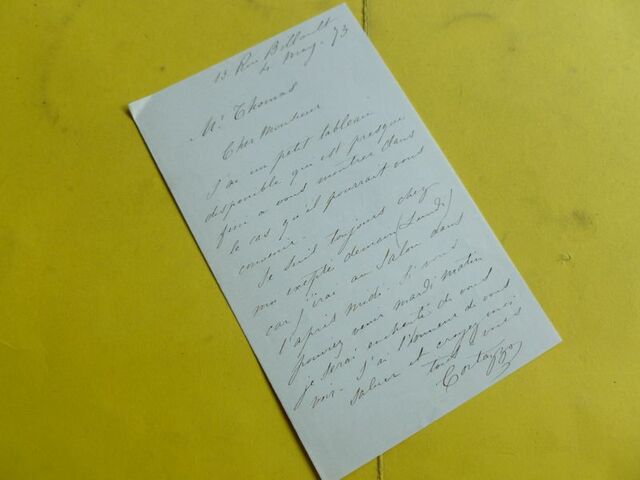 13 Rue Billault
4 May. 73
Mr Thomas
Cher Monsieur
J'ai un petit tableau
disponible qui est presque
fini a vous montrer dans
le cas qu'il pourrait vous
convenir.
Je suis toujours chez
moi exepté demain (Lundi)
car j'irai au Salon dans
l'après midi. Si vous
pouvez venir mardi matin
je serai enchanté de vous
voir. J'ai l'honneur de vous
saluer et croyez moi
tout à vous
Cortazzo